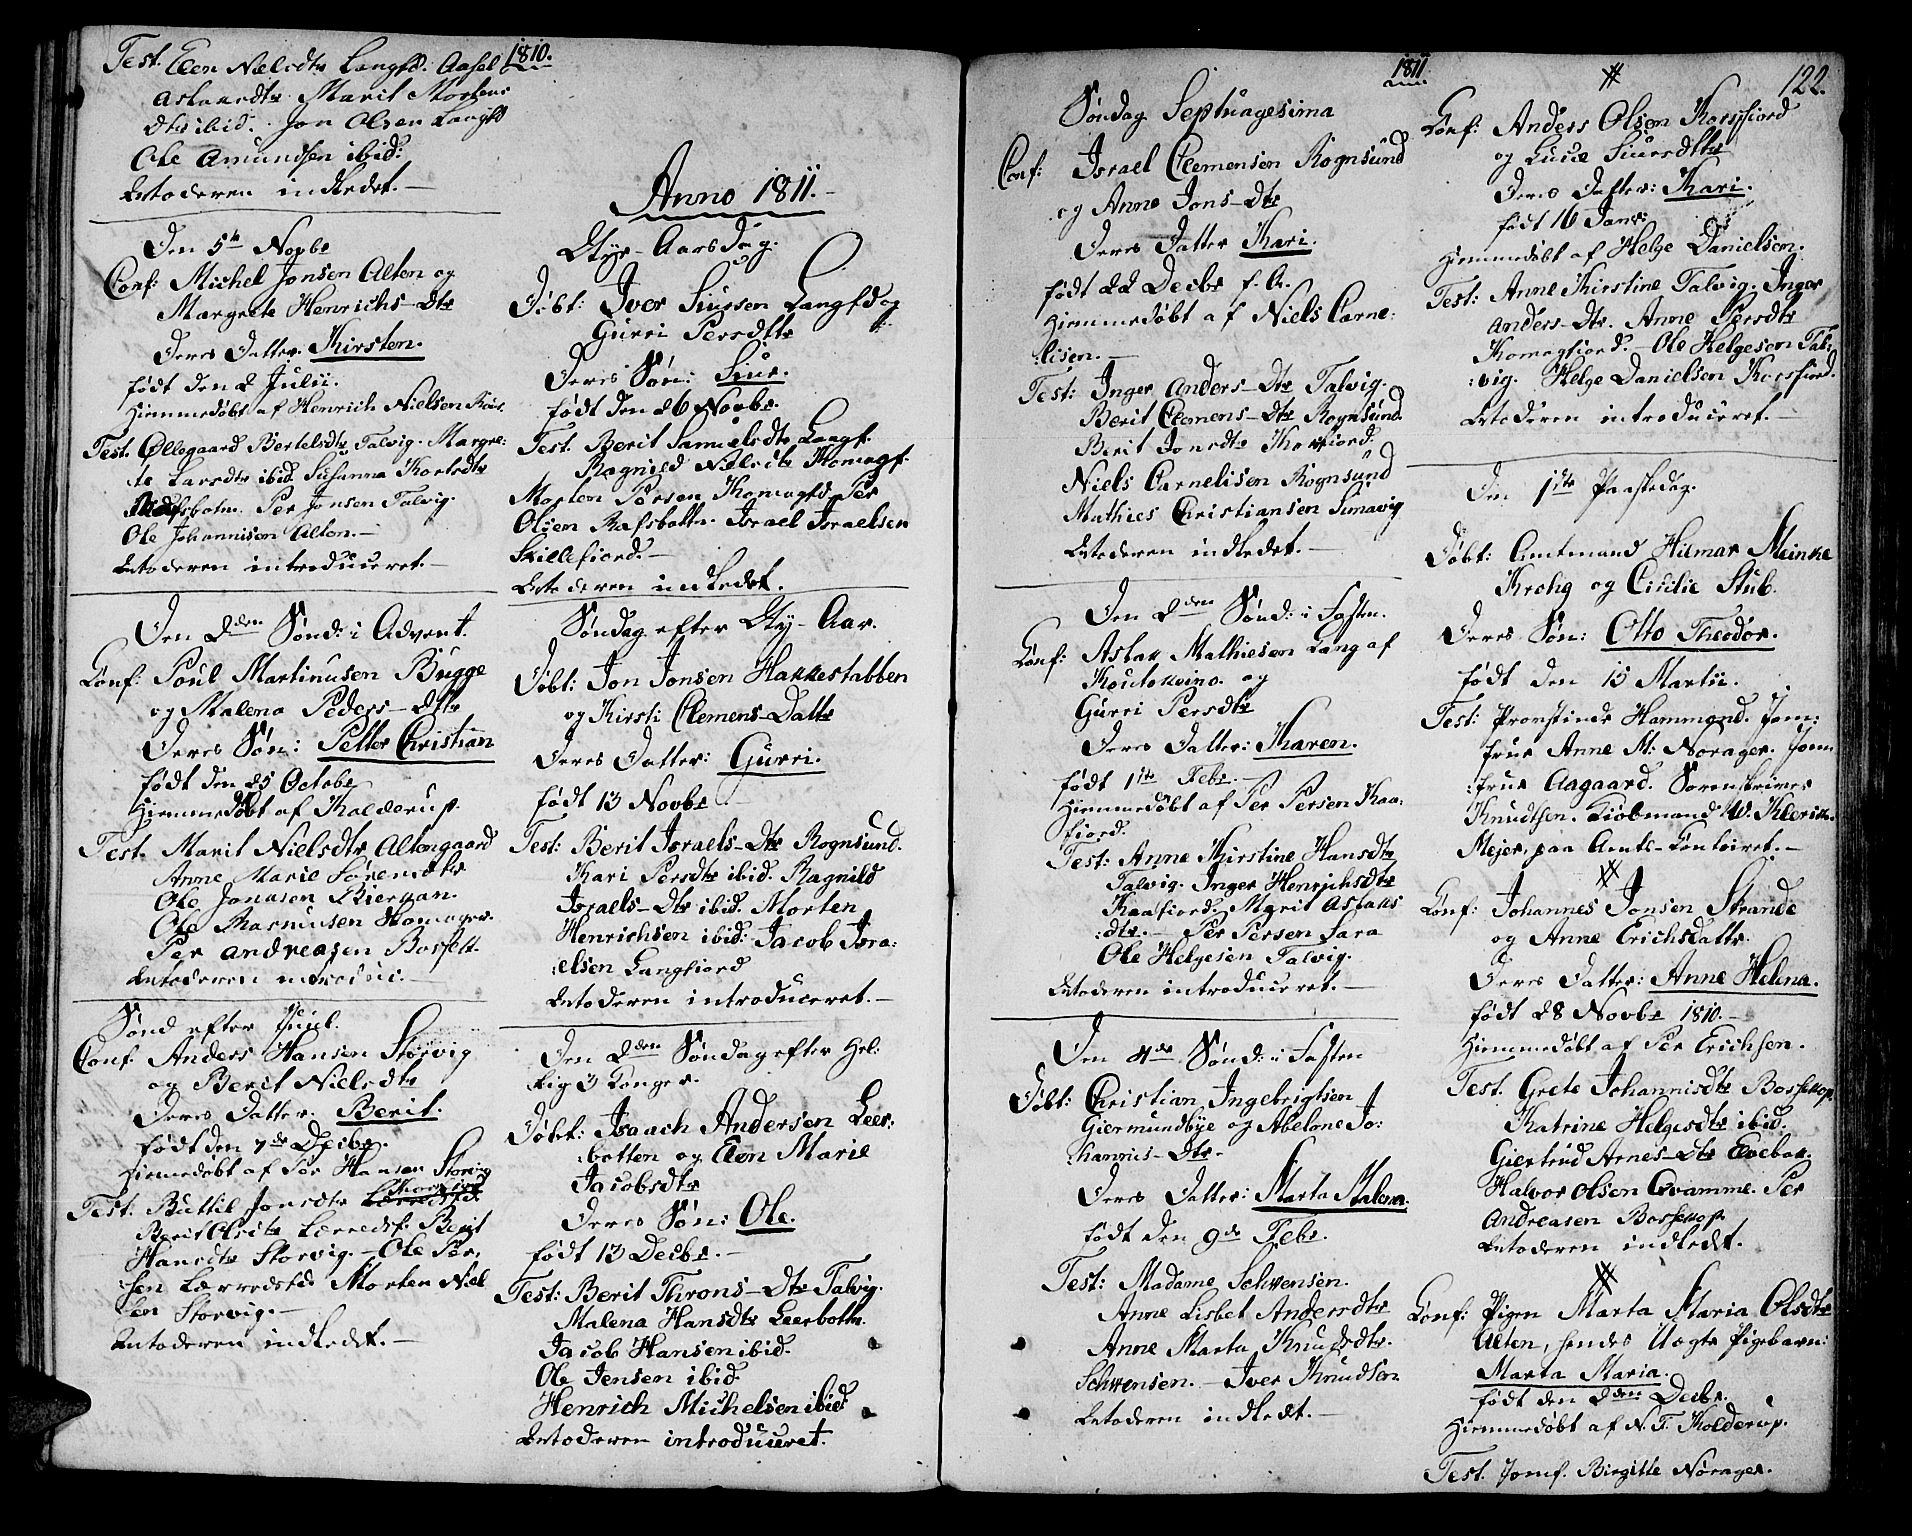 1810.
Test. Elen Nielsdtr Langfd. Aasel
Aslaardtr Marit Mortens
dtr ibid. Jon Olsen Langfd
Ole Amundsen ibid:
Moderen indledet.—
Den 5te Novbr
Conf: Michel Jonsen Alten og
Margrete Henrichs-Dtr
Deres Datter. Kirsten.
født den 2 Julii.
Hiemmedøbt af Henrich Nielsen
Test. Øllegaard Bertelsdtr Talvig. Margre:
te Larsdtr ibid. Susanna
Per Jonsen Talvig.
Ole Johannison Alten.—
Moderen introduceret.—
Den 2den Sønd: i Advent.
Conf: Poul Martinusen Bugge
og Malena Peders-dtr
Deres Søn: Petter Christian
født den 25 Octobr
Hiemmedøbt af Kolderup.
Test. Marit Nielsdtr Altengaard
Anne Marie Sørensdtr
Ole Jonasen Biergan.
Ole Rasmusen
Per Andreasen Bossek.
Moderen introduc:—
Sønd efter Juul.
Conf: Anders Hansen Storvig
og Berit Nielsdtr
Deres Datter. Berit.
født den 7de Decbr.
Hiemmedøbt af Per Hansen Storvig
Test: Buttil Jonsdtr
Berit Olsdtr Lerredsf. Berit
Hansdtr Storvig.— Ole Per:
sen Lerredsfd Morten Niel
sen Storvig.—
Moderen indledet.—
Anno 1811.—
Nyt-Aarsdag.
Døbt: Iver Siursen Langfd og
Gurri Persdtr
Deres Søn: Siur.
født den 26 Novbr.
Test. Berit Samuelsdtr Langf.
Ragnild Nielsdtr Komagf.
Morten Persen Komagfd. Per
Olsen Rafsbotten. Israel Israelsen
Skillefiord.—
Moderen indledet.
Søndag efter Ny-Aar.
Døbt: Jon Jonsen Hakkestabben
og Kirsti Clemens-Datter
Deres Datter: Gurri.
født 13 Novbr
Test: Berit Israels-Dtr Rognsund.
Kari Persdtr ibid. Ragnild
Israels-Dtr ibid. Morten
Henrichsen ibid: Jacob Isra:
:elsen Langfiord
Moderen introduceret.—
Den 2den Søndag efter Hel:
lig 3 Konger.
Døbt: Isaach Andersen Leer:
:botten og Elen Marie
Jacobsdtr
Deres Søn: Ole.
født 13 Decbr.—
Test: Berit Throns-Dtr Talvig.
Malena Hansdtr Leerbotten.
Jacob Hansen ibid.
Ole Jensen ibid.
Henrich Michelsen ibid
Moderen introduceret.
1811
Søndag Septuagesima
Conf: Israel Clemensen Rognsund
og Anne Jons-Dtr
Deres Datter Kari.
født 22 Decbr f. A.
Hiemmedøbt af Niels Carne:
lisen.—
Test: Inger Anders-Dtr Talvig.
Berit Clemens-Dtr Rognsund.
Berit Jonsdtr Korsfiord.
Niels Carnelisen Rognsund
Mathies Christiansen Simavig
Moderen indledet.—
Den 2den Sønd: i Fasten.
Conf: Aslak Mathiesen Lang af
Koutokeino. og
Gurri Persdtr
Deres Datter: Karen.
født 1ste Febr.—
Hiemmedøbt af Per Persen Kaa:
fiord.
Test: Anne Kirstine Hansdtr
Talvig. Inger Henrichsdtr
Kaafiord. Marit Aslaks
:dtr.— Per Persen Sara
Ole Helgesen Talvig.
Moderen introduceret.—
Den 4de Sønd: i Fasten
Døbt: Christian Ingebrigtsen
Giermundbye og Abelone Jo:
:hannis-Dtr.
Deres Datter: Marta Malena.
født den 9de Febr.
Test: Madame Schwensen.
Anne Lisbet Andersdtr
Anne Marta Knudsdtr.
Schwensen.— Iver Knudsen
Moderen indledt.—
122.
Conf: Anders Olsen Korsfiord
og Luce Siursdtr
Deres Datter: Kari.
født 16 Janr:
Hiemmedøbt af Helge Danielsen.
Test: Anne Kirstine Talvig. Inger
Anders-Dtr. Anne Persdtr
Komagfiord.— Ole Helgesen Tal:
:vig. Helge Danielsen Korsfiord.
Moderen introduceret.—
Den 1ste Paaskedag.
Døbt: Amtmand Hilmar Meinke
Krohg og Cicilie Stub.
Deres Søn: Otto Theodor.
født den 15 Martii.
Test: Provstinde Hammond. Jom:
frue Anne M: Norager. Jom
:frue Aagaard. Sorenskriver
Knudtsen. Kiøbmand W. Klerck.
Mejer, paa Amts-Contoiret.—
Conf: Johannes Jonsen Strande
og Anne Erichsdattr.
Deres Datter: Anne Helena.
født 28 Novbr 1810.—
Hiemmedøbt af Per Erichsen.
Test. Grete Johannisdtr Bossekop.
Katrine Helgesdtr ibid.
Giertrud Arnes-Dtr Elvebak.
Halvor Olsen Qvamme. Per
Andreasen Bossekop.
Moderen indledt.
Conf: Pigen Marta Maria Olsdtr
Alten, hendes Uægte Pigebarn:
Marta Maria.
født den 2den Decbr.
Hiemmedøbt af N. F. Kolderup.
Test. Jomf. Birgitte Nørager.